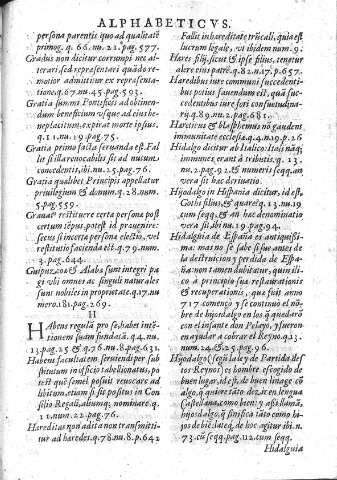 ALPHABETICVS.
persona parentis quo ad qualitatē
primog. q. 66. nu. 21. pag. 577.
Gradus non dicitur corrumpi nec al-
terari, sed repræsentari quādo re-
motior admittitur ex repræsenta-
tione. q. 67. nu. 45. pag. 593.
Gratia summi Pontificis ad obtinen-
dum beneficium vsque ad eius be-
neplacitum, expirat morte ipsius.
q. 11. nu. 19. pag. 75.
Gratia primo facta seruanda est. Fal
lit si illa reuocabilis sit ad nutum
concedentis, ibi nu. 25. pag. 76.
Gratia quælibet Principis appellatur
priuilegium & donum. q. 28. num.
5. pag. 559.
restituere certa persona post
certum tēpus, potest id præuenire:
secus si incerta persona electio, vel
restitutio facienda est. q. 79. num.
3. pag. 644.
Guipuzcoa & Alaba sunt integri pa
gi vbi omnes ac singuli naturales
sunt nobiles in proprietate. q. 17. nu
mero. 181. pag. 269.
H
Habens regulā pro se, habet intē-
tionem suam fundatā. q. 4. nu.
13. pag. 25. & q. 76. nu. 8. pag. 631.
Habens facultatem seruiendi per sub
stitutum in officio tabellionatus, po
test quē semel posuit reuocare ad
libitum, etiam si sit positus in Con-
silio Regali, aliumq; nominare. q.
11. num. 22. pag. 76.
Hæreditas non adita non transmitti-
tur ad hæredes. q. 78. nu. 8. p. 642
Fallit in hæreditate trāscali, quia est
lucrum legale, vt ibidem num. 9.
Hæres filij, sicut & ipse filius, tenetur
alere eius patrē. q. 82. n. 17. p. 657.
Hæredibus iure communi succedenti-
bus potius fauendum est, quā suc-
cedentibus iure fori consuetudina-
rij. q. 89. nu. 2. pag. 681.
Hæreticus & blasphemus nō gaudent
immunitate ecclesiæ. q. 4. n. 19. p. 26
Hidalgo dicitur ab Italico: Itali nāq;
immunes, erant à tributis. q. 13.
nu. 2. pag. 92. & numeris seqq. an
vera sit hæc deriuatio.
Hijodalgo in Hispania dicitur, id est,
Gothi filius, & quare q. 13. nu. 19
cum seqq. & an hæc denominatio
vera sit ibi nu. 19. pag. 94.
Hidalguia de España es antiquissi-
ma: mas no se sabe si fue antes de
la destruicion y perdida de Espa-
ña: non tamen dubitatur, quin illi-
co à principio suæ restaurationis
& recuperationis, que fue año
717 començo y se continuo el nō-
bre de hijodalgo en los q̄ quedarō
con el infante don Pelayo, y fueron
en ayudar a cobrar el Reyno. q. 13.
num. 24. & 25. pag. 96.
Hijodalgo (segū la ley de Partida des-
tos Reynos) es hombre escogido de
buen lugar, id est, de buen linage cō
algo, q̄ quiere tanto dezir en lengua
Castellana, como bien, y assi llamā
hijosdalgo, q̄ sinifica tāto como hi-
jos de bien, &c. aliqua tibi ibi. n.
73. cū seqq. pag. 112. cum seqq.
Hidalguia